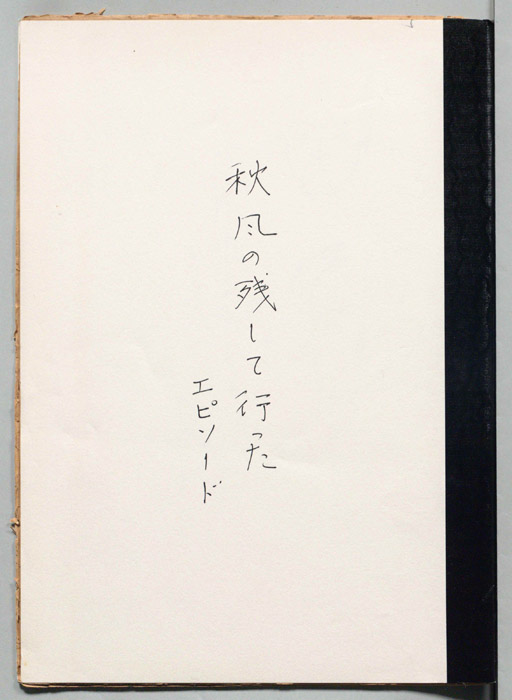 秋風の残して行った
エピソード